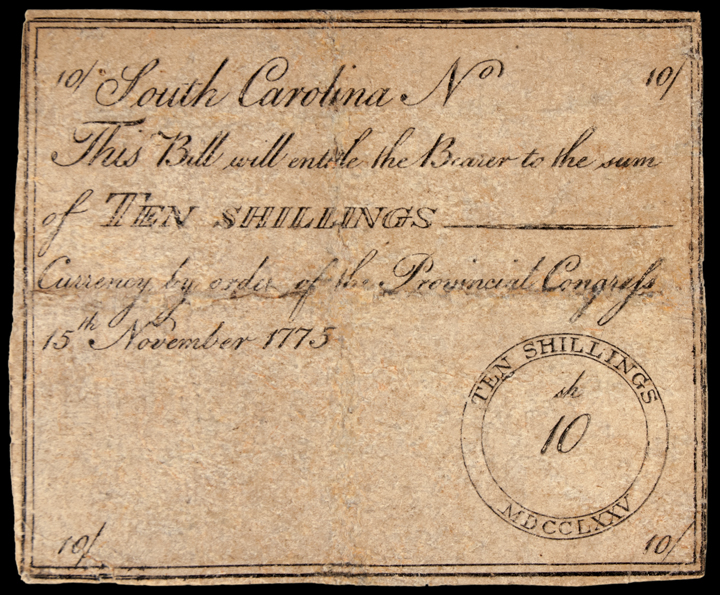 10/ South Carolina No 10/
This Bill will entitle the Bearer to the sum
of TEN SHILLINGS
Currency by order of the Provincial Congress
15th November 1775
TEN SHILLINGS
sh
10
MDCCLXXV
10/ 10/